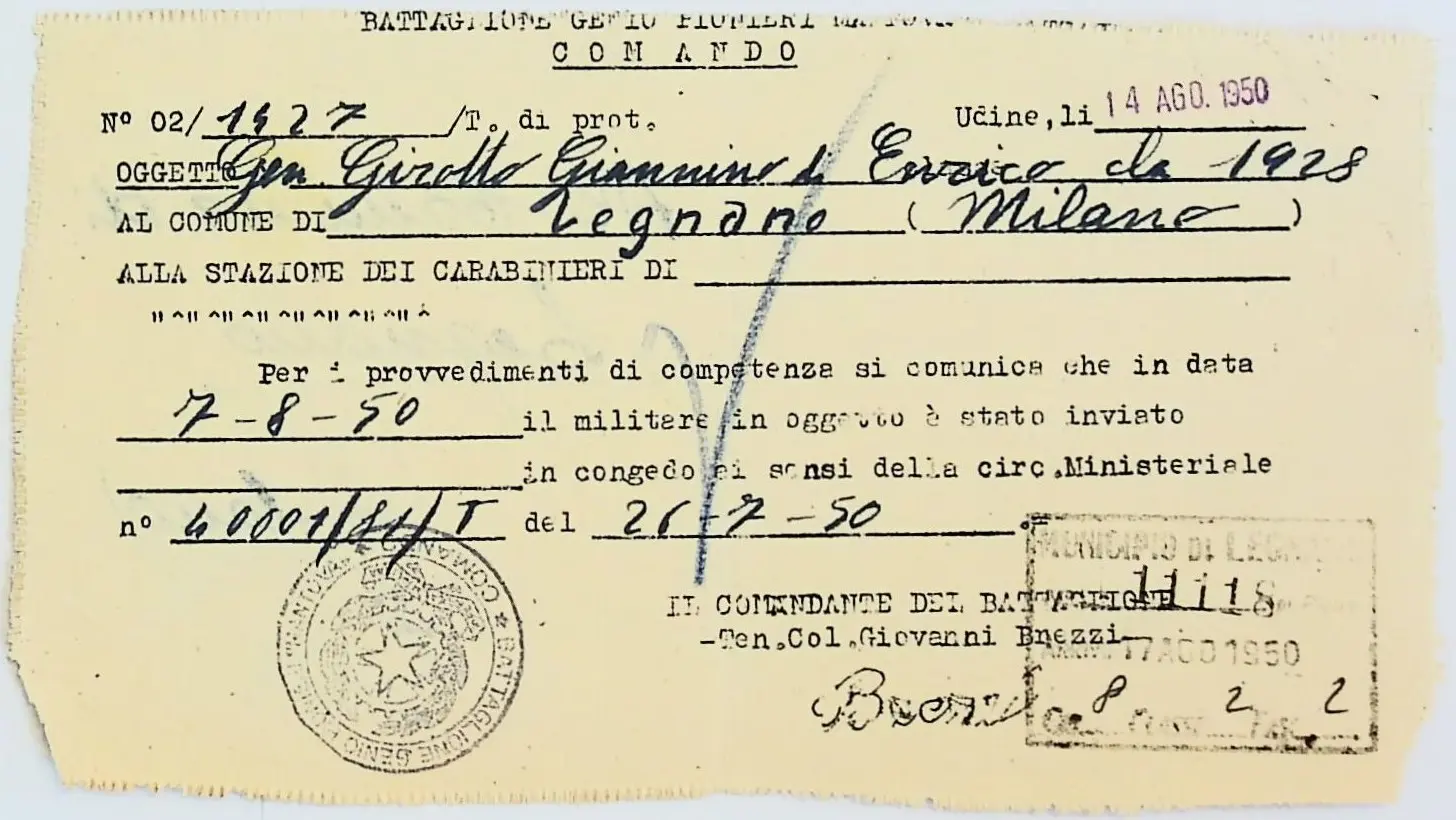 BATTAGLIONE GENIO PIONIERI MANTOVA
C O M A N D O
N° 02/ 1927 /T. di prot. Udine, li 14 AGO. 1950
OGGETTO Gen Girotto Giannino di Enrico da 1928
AL COMUNE DI Legnano ( Milano )
ALLA STAZIONE DEI CARABINIERI DI
Per i provvedimenti di competenza si comunica che in data
7-8-50 il militare in oggetto è stato inviato
in congedo ai sensi della circ.Ministeriale
n° 40001/81/T del 26-7-50.=
MUNICIPIO DI LEGNANO
11118
IL COMANDANTE DEL BATTAGLIONE
-Ten.Col.Giovanni Brezzi-
ARRIV. 17 AGO 1950
Brezzi
Cat. 8 Classe 2 Fasc. 2
★ BATTAGLIONE GENIO PIONIERI "MANTOVA" ★ COMANDO